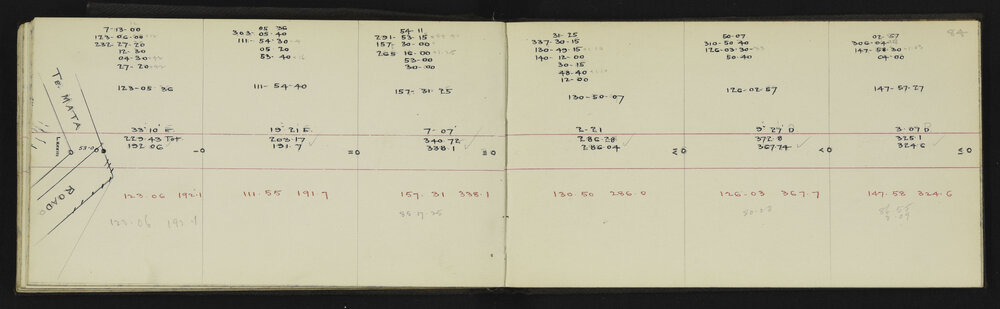 84
7-13-00
123-06-00
232-27-20
12-30
04-30
27-20
123-05-36
TE MATA
ROAD
53-0
33'10 E.
229.43 Tot
192.06
123-06 192.1
123-06 192.1
05 36
303-05-40
111-54-30
05-20
53-40
111-54-40
19'21 E.
203.17
191.7
111.55 191.7
54-11
291-53-15
157-30-00
265-16-00
53-00
30-00
157-31-25
7-07'
340.72
338.1
157.31 338.1
31-25
337-30-15
130-49-15
140-12-00
30-15
48-40
12-00
130-50-07
2-21
286.28
286.04
130-50 286.0
50-07
310-50 40
126-03-30
50-40
126-02-57
9'27' D
372.8
367.74
126-03 367.7
02-57
147-58-30
04-00
147-57-27
3-07 D
325.1
324.6
147-58 324.6